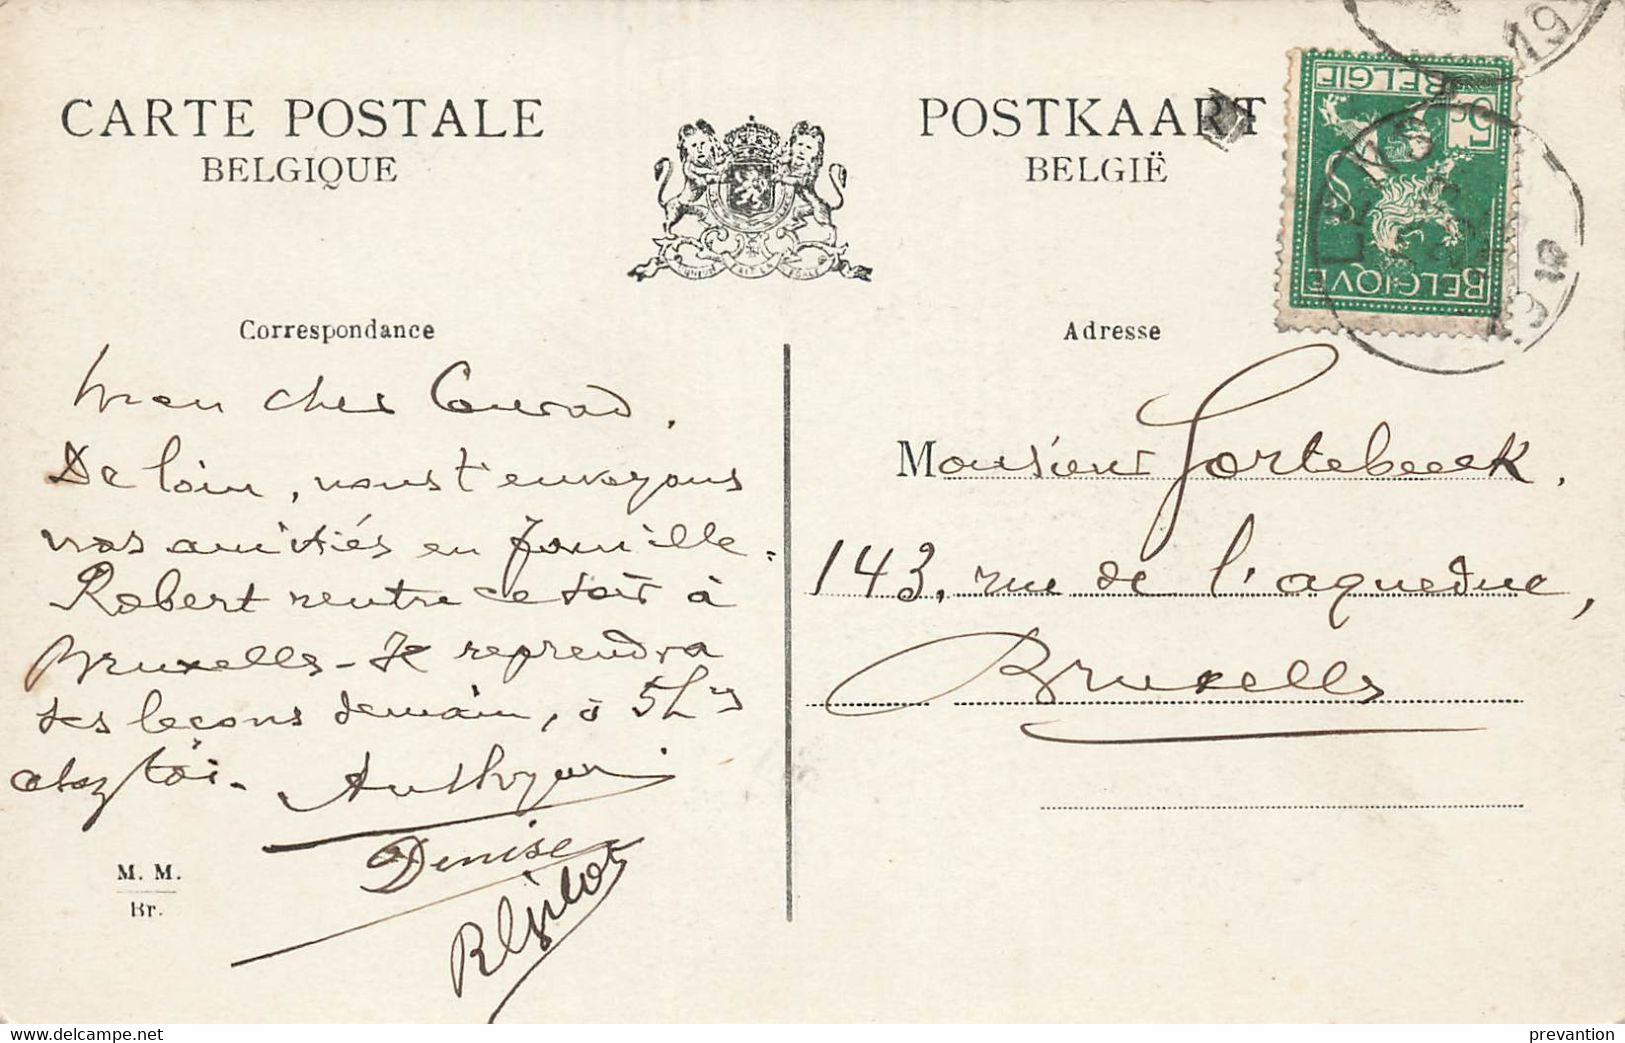 CARTE POSTALE
BELGIQUE
POSTKAART
BELGIË
BELGIË
5c
BELGIQVE
LENS
19
Correspondance
Adresse
Mon cher Conrad.
De loin, nous t'envoyons
nos amitiés en famille.
Robert rentre ce soir à
Bruxelles - Je reprendra
les leçons demain, à 5 h
chez toi.
Denise
M. M.
Br.
Monsieur Gortebeeek.
143, rue de l'aqueduc,
Bruxelles
delcampe.net
prevantion